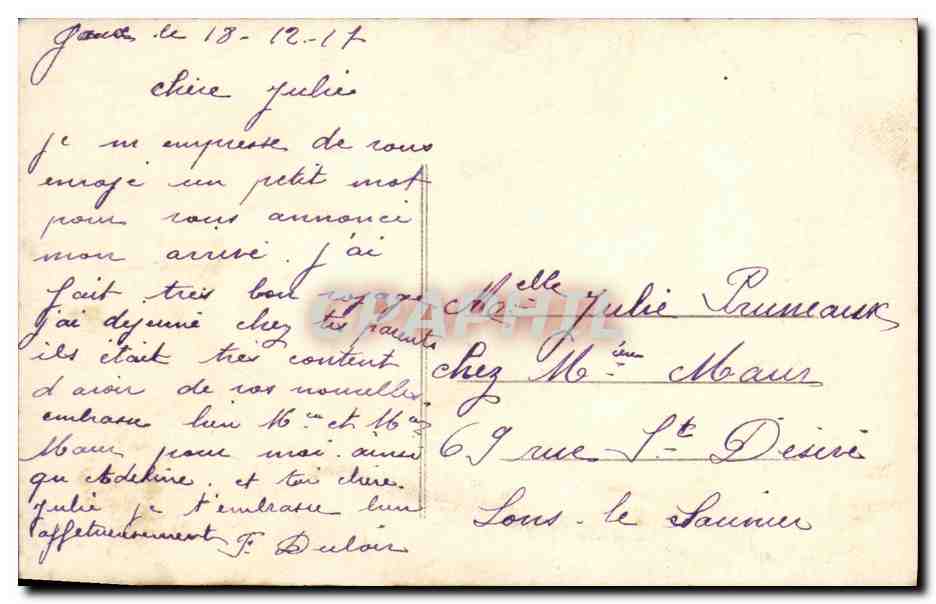 le 18-12-17
chère Julie
je m empresse de vous
envoje un petit mot
pour vous annonce
mon arrivé. j'ai
fait très bon voyage
j'ai dejeuné chez tes parents
ils était très content
d avoir de vos nouvelles
embrasse bien Mr et Mme
Maur pour moi. ainsi
qu Adeline. et toi chère.
Julie je t'embrasse bien
affetueusement F. Duloir
Melle Julie Pruneaux
chez Mme Maur
69 rue St Désiré
Lons-le Saunier
CRAPHIL